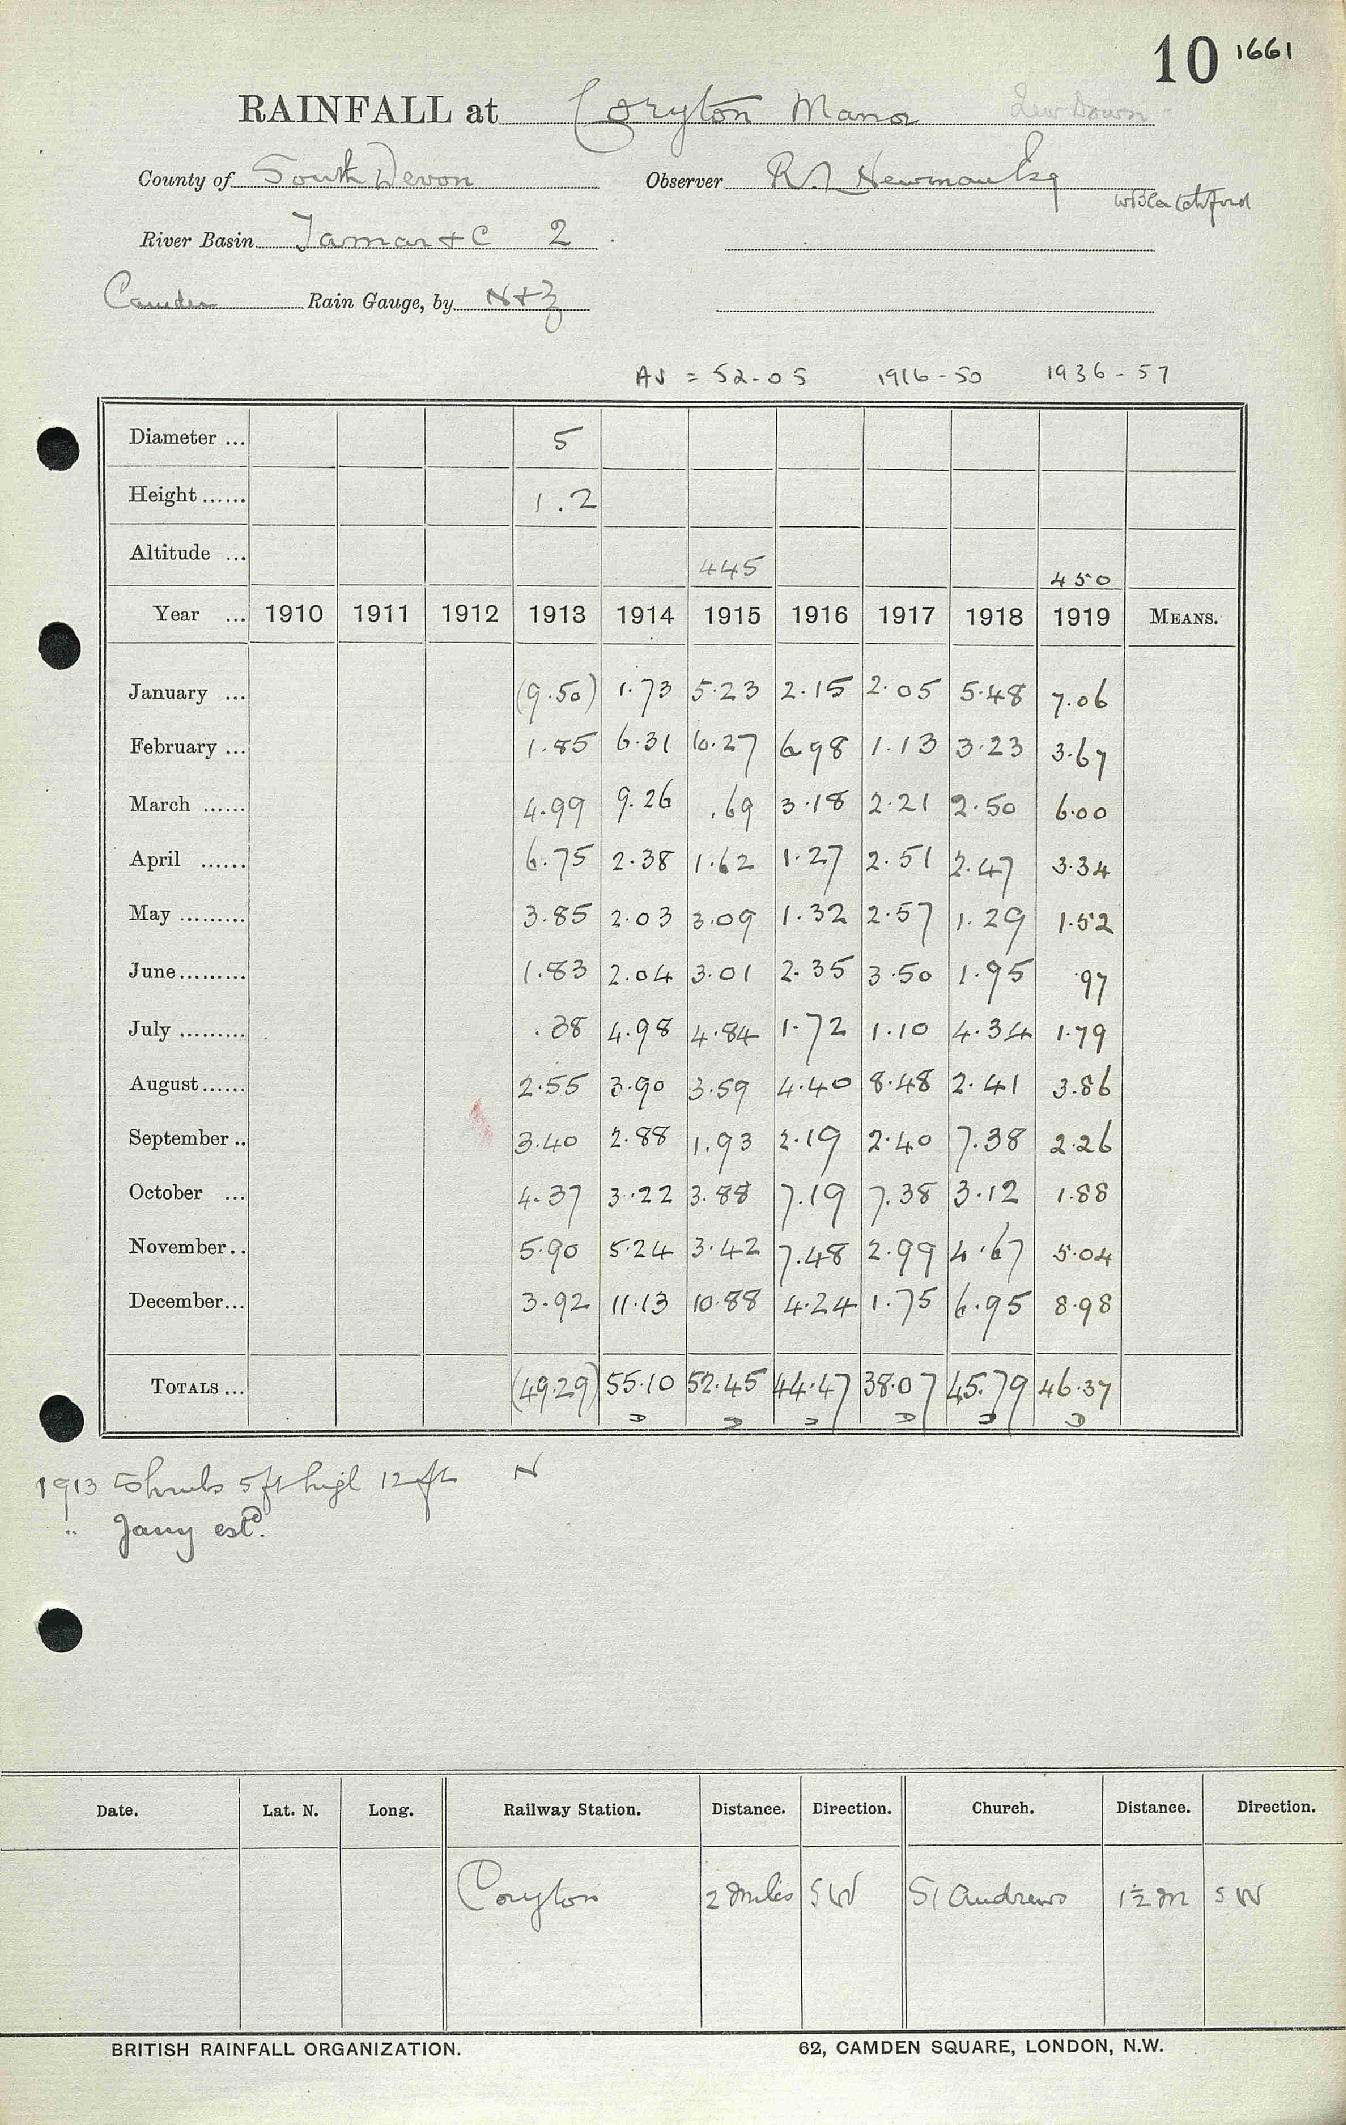 10 1661
RAINFALL at Coryton Manor Lew Down
County of South Devon Observer R. Newman Esq
W Blatchford
River Basin Tamar &C 2
Camden Rain Gauge, by N+Z
Av = 52.05 1916-50 1936-57
Diameter ... 5
Height ...... 1.2
Altitude ... 445 450
Year ... 1910 1911 1912 1913 1914 1915 1916 1917 1918 1919 MEANS.
January ... (9.50) 1.73 5.23 2.15 2.05 5.48 7.06
February ... 1.85 6.31 10.27 6.98 1.13 3.23 3.67
March ...... 4.99 9.26 .69 3.18 2.21 2.50 6.00
April ...... 6.75 2.38 1.62 1.27 2.51 2.47 3.34
May ......... 3.85 2.03 3.09 1.32 2.57 1.29 1.52
June ......... 1.83 2.04 3.01 2.35 3.50 1.95 .97
July ......... .38 4.98 4.84 1.72 1.10 4.34 1.79
August ...... 2.55 3.90 3.59 4.40 8.48 2.41 3.86
September .. 3.40 2.88 1.93 2.19 2.40 7.38 2.26
October ... 4.37 3.22 3.88 7.19 7.38 3.12 1.88
November .. 5.90 5.24 3.42 7.48 2.99 4.67 5.04
December ... 3.92 11.13 10.88 4.24 1.75 6.95 8.98
TOTALS ... (49.29) 55.10 52.45 44.47 38.07 45.79 46.37
D D D D D D
1913 Shrubs 5ft high 12 ft N
" Jany estd.
Date. Lat. N. Long. Railway Station. Distance. Direction. Church. Distance. Direction.
Coryton 2 Miles SW St Andrews 1½ m SW
BRITISH RAINFALL ORGANIZATION. 62, CAMDEN SQUARE, LONDON, N.W.